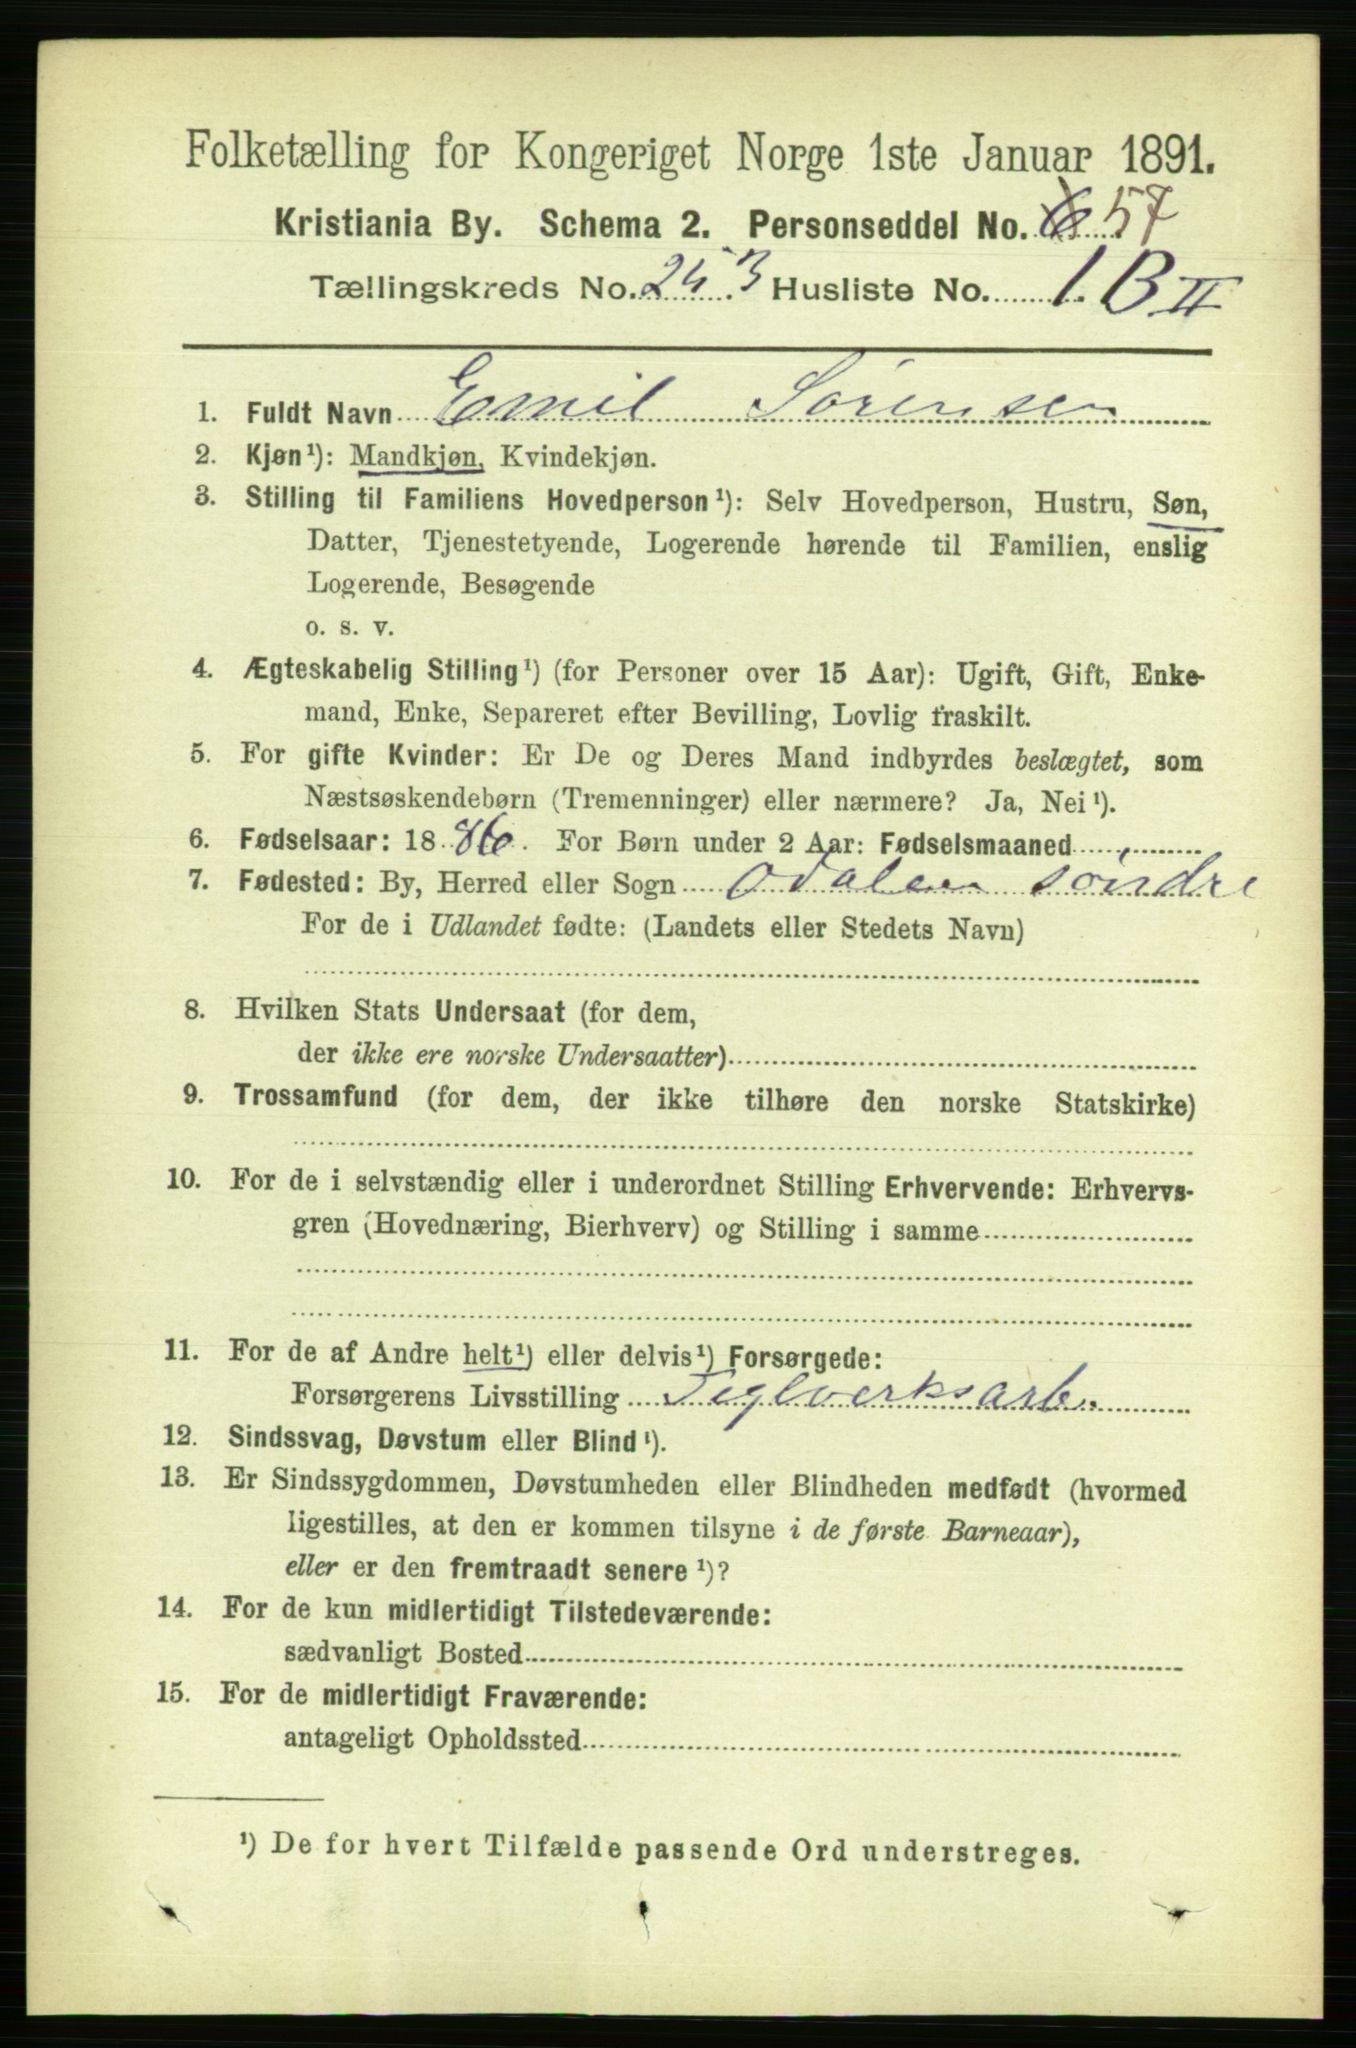 Folketælling for Kongeriget Norge 1ste Januar 1891.
Kristiania By. Schema 2. Personseddel No. 6 57
Tællingskreds No. 253 Husliste No. 1. B II
1. Fuldt Navn Emil Sørensen
2. Kjøn¹): Mandkjøn, Kvindekjøn.
3. Stilling til Familiens Hovedperson¹): Selv Hovedperson, Hustru, Søn,
Datter, Tjenestetyende, Logerende hørende til Familien, enslig
Logerende, Besøgende
o. s. v.
4. Ægteskabelig Stilling¹) (for Personer over 15 Aar): Ugift, Gift, Enke-
mand, Enke, Separeret efter Bevilling, Lovlig fraskilt.
5. For gifte Kvinder: Er De og Deres Mand indbyrdes beslægtet, som
Næstsøskendebørn (Tremenninger) eller nærmere? Ja, Nei¹).
6. Fødselsaar: 1886. For Børn under 2 Aar: Fødselsmaaned
7. Fødested: By, Herred eller Sogn Odalen søndre
For de i Udlandet fødte: (Landets eller Stedets Navn)
8. Hvilken Stats Undersaat (for dem,
der ikke ere norske Undersaatter)
9. Trossamfund (for dem, der ikke tilhøre den norske Statskirke)
10. For de i selvstændig eller i underordnet Stilling Erhvervende: Erhvervs-
gren (Hovednæring, Bierhverv) og Stilling i samme
11. For de af Andre helt¹) eller delvis¹) Forsørgede:
Forsørgerens Livsstilling Teglverksarb.
12. Sindssvag, Døvstum eller Blind¹).
13. Er Sindssygdommen, Døvstumheden eller Blindheden medfødt (hvormed
ligestilles, at den er kommen tilsyne i de første Barneaar),
eller er den fremtraadt senere¹)?
14. For de kun midlertidigt Tilstedeværende:
sædvanligt Bosted
15. For de midlertidigt Fraværende:
antageligt Opholdssted
¹) De for hvert Tilfælde passende Ord understreges.